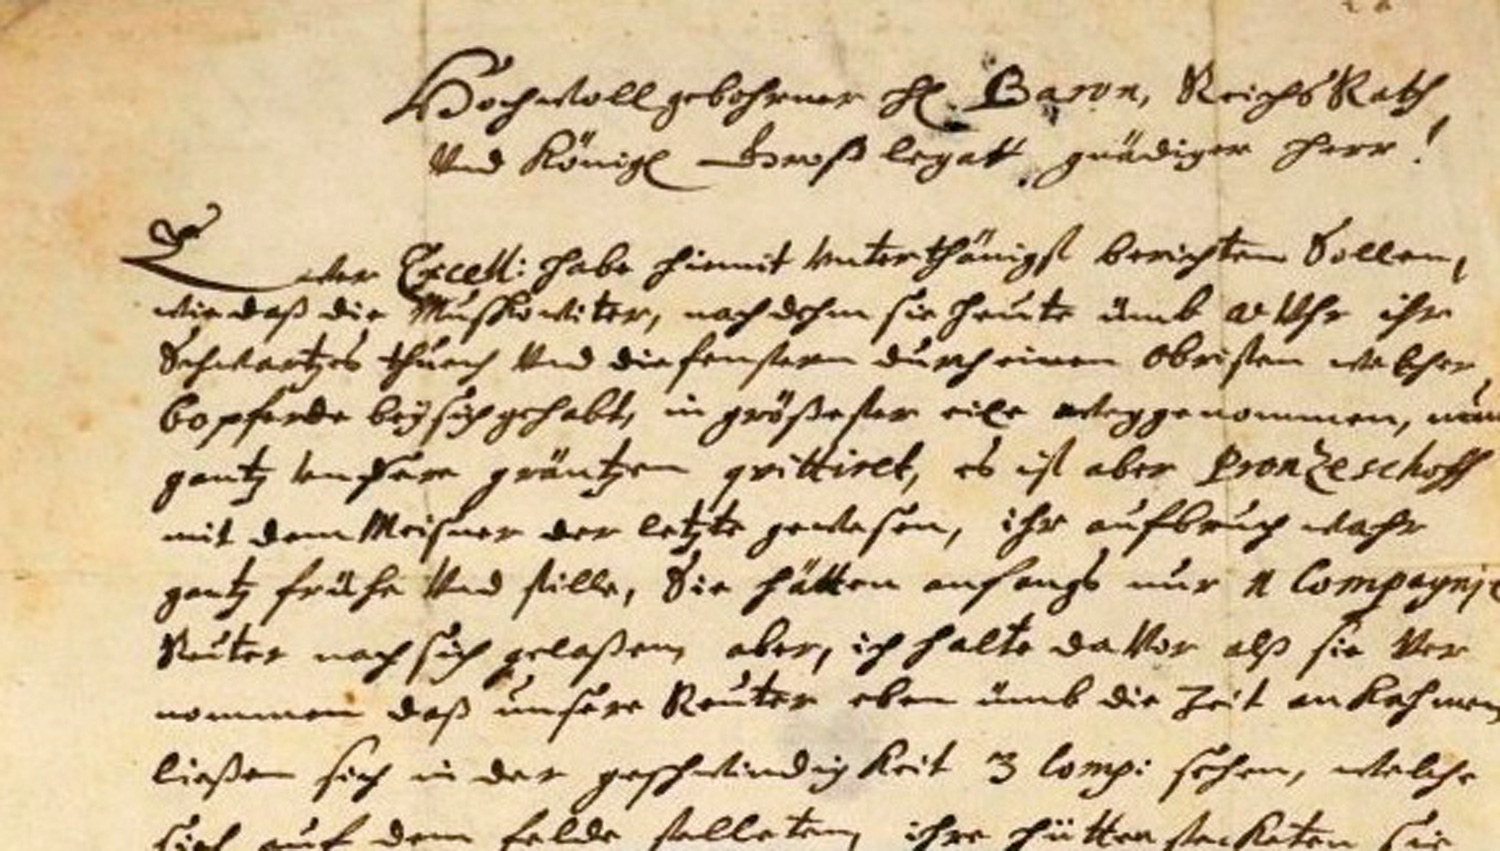 Hochwollgebohrner H. Baron, ReichsRath,
Vnd Königl Groß legatt, gnädiger Herr!
Ewer Excell: habe hiemit Vnterthänigst berichten Sollen,
wie daß die Mußkowiter, nachdehm sie heute ümb Uhr ihr
Schwartzes thuch Vnd die fenstern durch einen Obristen welcher
60 pferde beÿ sich gehabt, in größester eile weggenommen, nun
gantz Vnsere gräntzen qvittiret, es ist aber Pronzeschoff
mit dem Meisner der letzte gewesen, ihr aufbruch wahr
gantz frühe Vnd stille, Sie hätten anfangs nur Compagnie
Reuter nach sich gelaßen, aber, ich halte daVor alß sie Ver
nommen daß unsere Reuter eben ümb die Zeit ankahmen
ließen sich in der geschwindigkeit 3 Comp: sehen, welche
sich auf dem felde stelleten, ihre hütten steckten sie